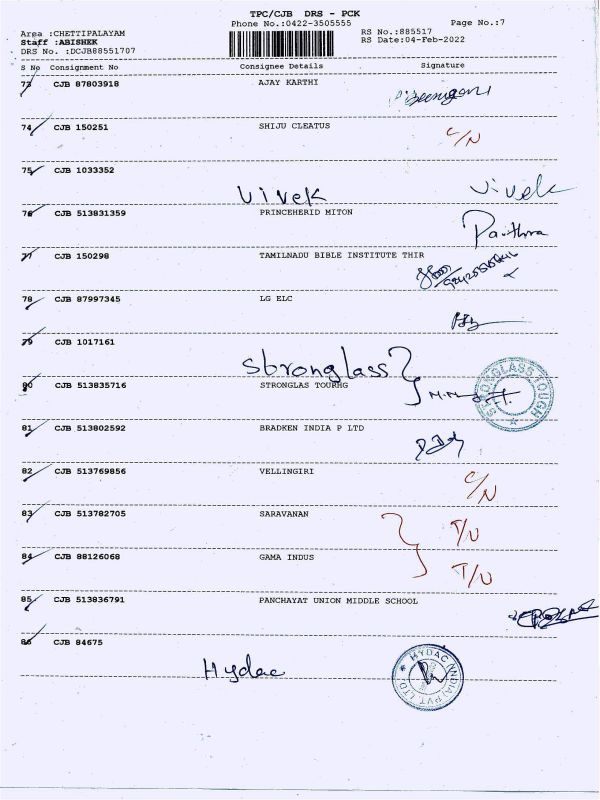 TPC/CJB DRS - PCK
Phone No.:0422-3505555 Page No.:7
Area :CHETTIPALAYAM RS No.:885517
Staff :ABISHEK RS Date:04-Feb-2022
DRS No. :DCJB88551707
S No Consignment No Consignee Details Signature
73 CJB 87803918 AJAY KARTHI
74 CJB 150251 SHIJU CLEATUS C/N
75 CJB 1033352 Vivek Vivek
76 CJB 513831359 PRINCEHERID MITON Pavithra
77 CJB 150298 TAMILNADU BIBLE INSTITUTE THIR
78 CJB 87997345 LG ELC
79 CJB 1017161 Stronglass
80 CJB 513835716 STRONGLAS TOURHG
STRONGLASS TOUGH
81 CJB 513802592 BRADKEN INDIA P LTD
82 CJB 513769856 VELLINGIRI C/N
83 CJB 513782705 SARAVANAN T/U
84 CJB 88126068 GAMA INDUS T/U
85 CJB 513836791 PANCHAYAT UNION MIDDLE SCHOOL
86 CJB 84675 Hydac
HYDAC (INDIA) PVT. LTD.